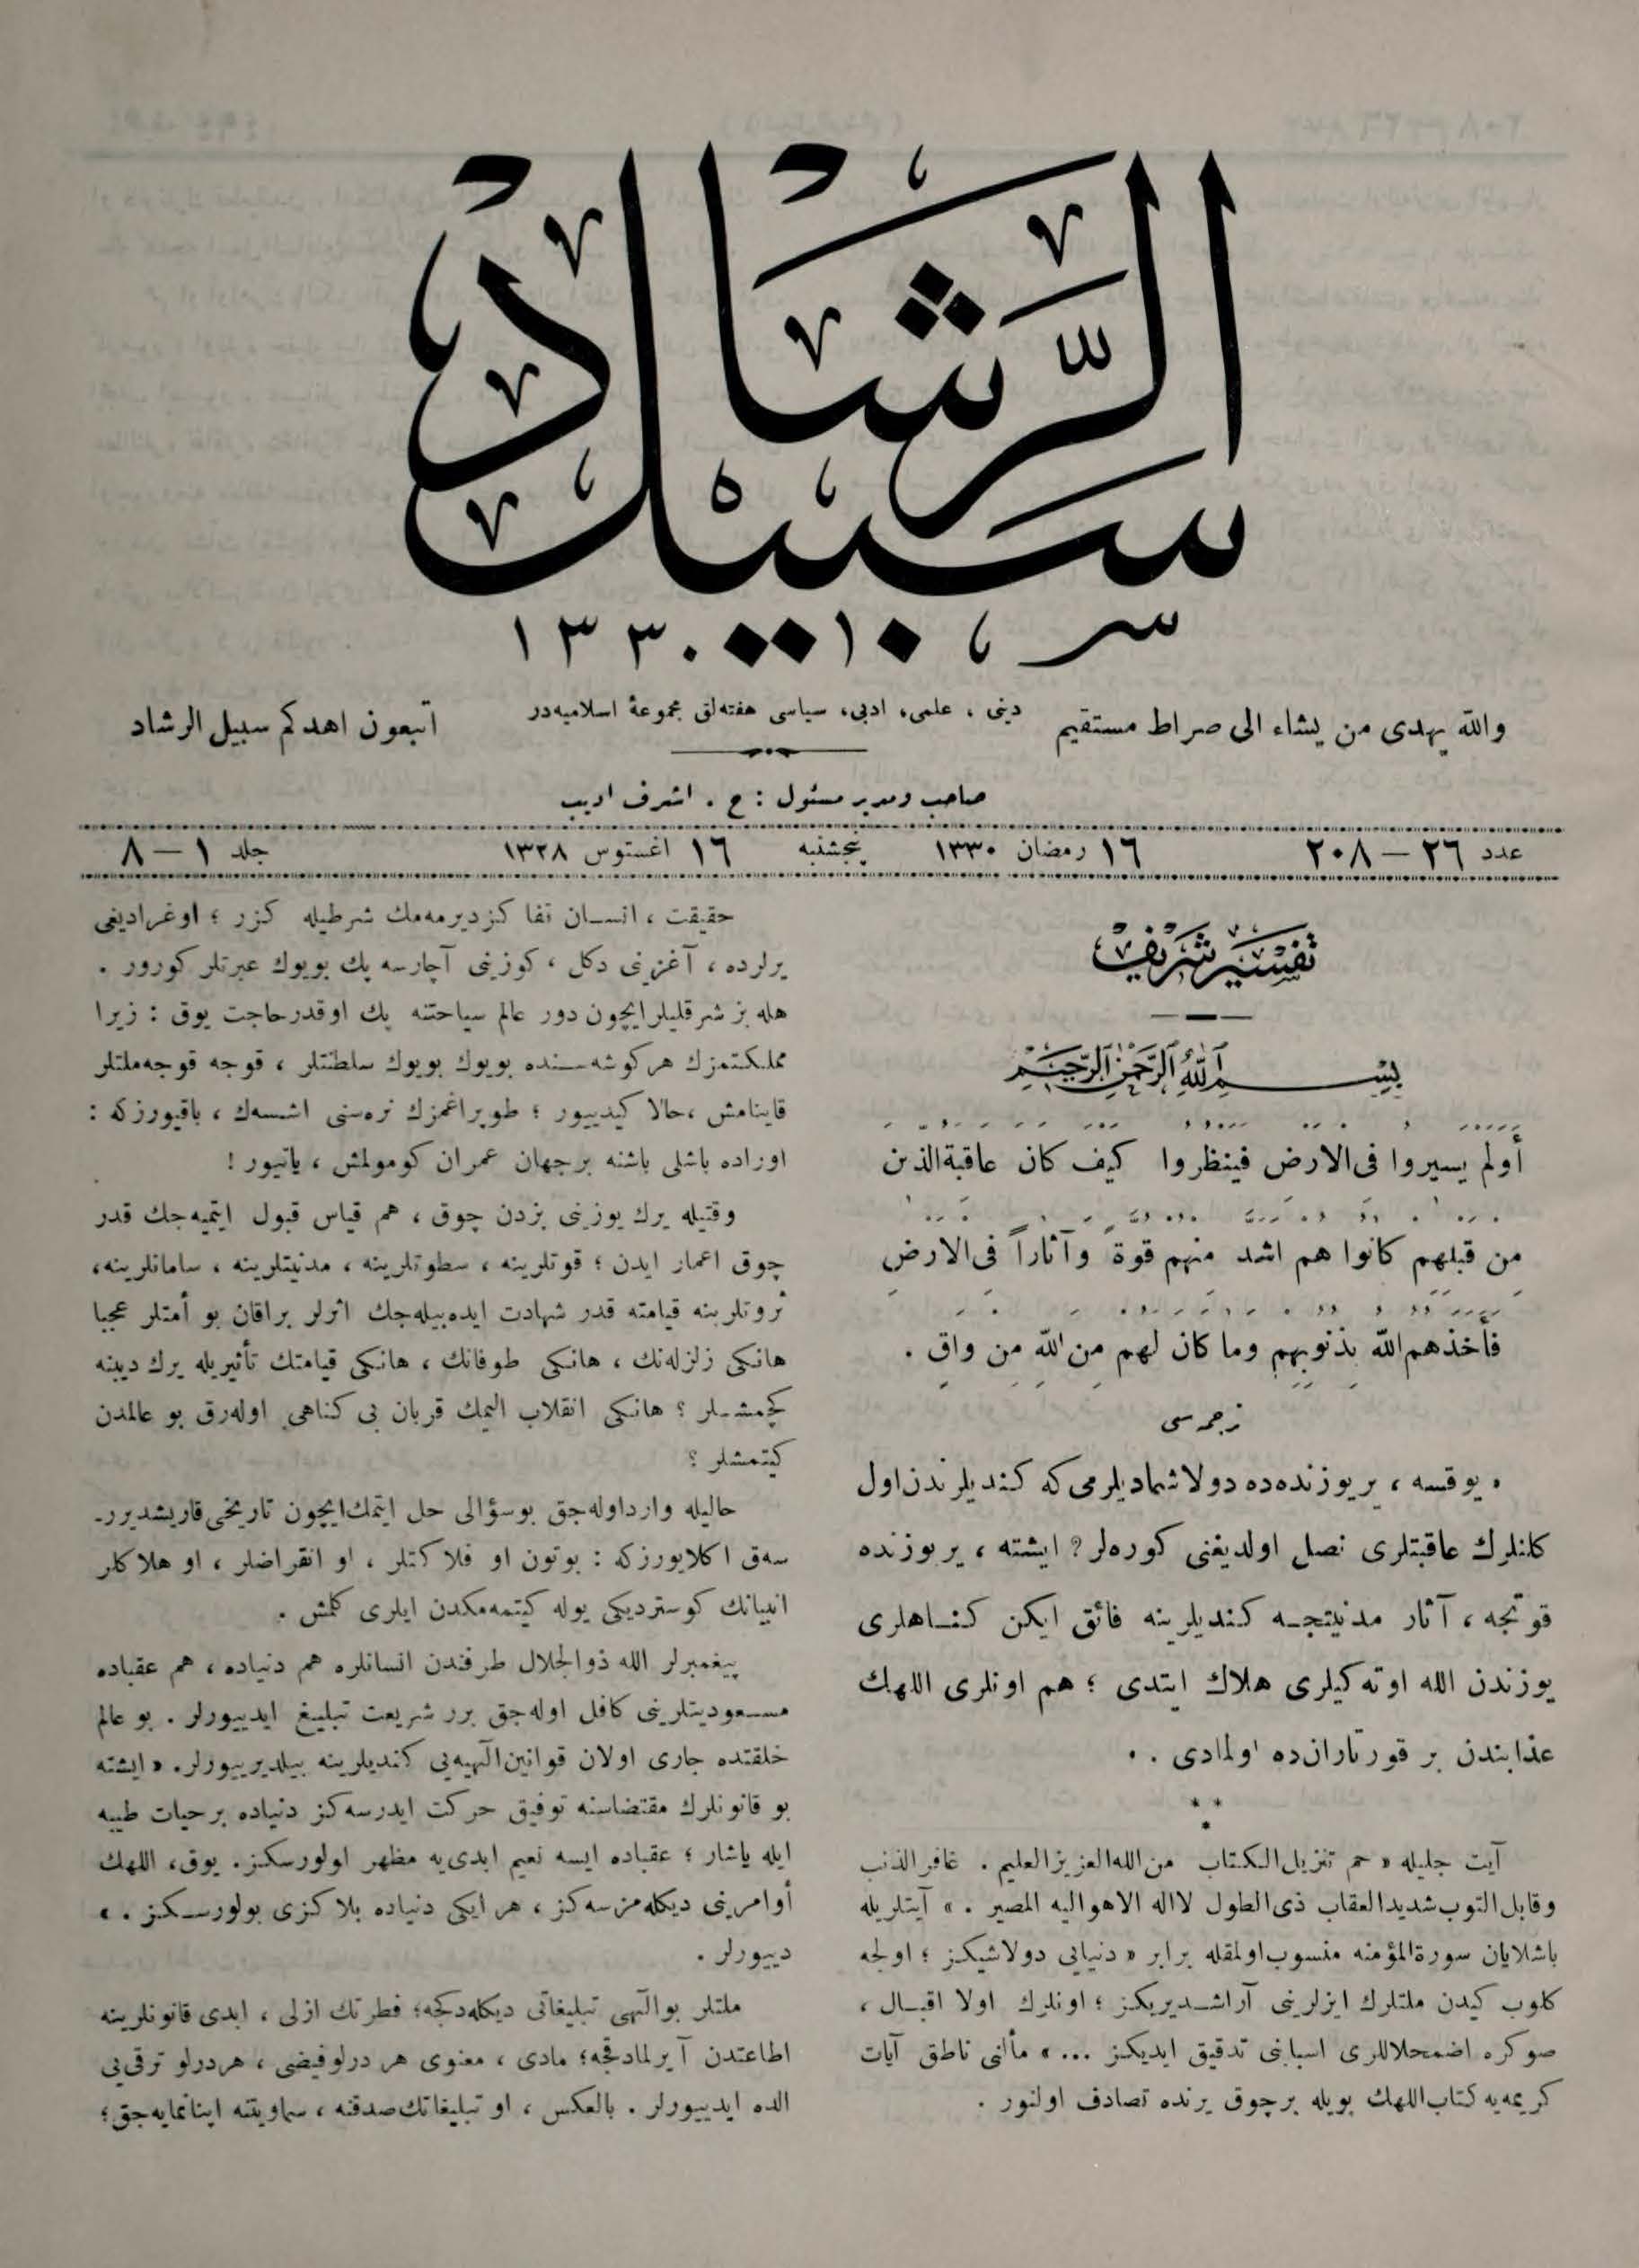 سبيل الرشاد
١٣٣٠
والله يهدى من يشاء الى صراط مستقيم
دينى ، علمى، ادبى، سياسى هفته‌لق مجموعهٔ اسلاميه‌در
اتبعون اهدكم سبيل الرشاد
صاحب ومدير مسئول : ح . اشرف اديب
عدد ٢٦ — ٢٠٨
١٦ رمضان ١٣٣٠
پنجشنبه
١٦ اغستوس ١٣٢٨
جلد ١ — ٨
تفسير شريف
بسم الله الرحمن الرحيم
أولم يسيروا فى‌الارض فينظروا كيف كان عاقبة‌الذين
من قبلهم كانوا هم اشد منهم قوةً وآثاراً فى‌الارض
فأخذهم‌الله بذنوبهم وما كان لهم من‌الله من واق .
ترجمه‌سى
« يوقسه ، ير يوزنده‌ده دولاشماديلرمى كه كنديلرندن اول
كلنلرك عاقبتلرى نصل اولديغنى كوره‌لر؟ ايشته ، ير يوزنده
قوتجه ، آثار مدنيتجـه كنديلرينه فائق ايكن كنـاهلرى
يوزندن الله اوته‌كيلرى هلاك ايتدى ؛ هم اونلرى اللهك
عذابندن بر قورتاران‌ده اولمادى . »
* * *
آيت جليله « حم تنزيل‌الكتاب من‌الله‌العزيزالعليم . غافرالذنب
وقابل‌التوب‌شديدالعقاب ذى‌الطول لااله الاهواليه المصير . » آيتلريله
باشلايان سورة‌المؤمنه منسوب‌اولمقله برابر « دنيايى دولاشيكز ؛ اولجه
كلوب كيدن ملتلرك ايزلرينى آراشـديريكز ؛ اونلرك اولا اقبـال ،
صوكره اضمحلاللرى اسبابنى تدقيق ايديكز ... » مآلنى ناطق آيات
كريمه‌يه كتاب‌اللهك بويله برچوق يرنده تصادف اولنور .
حقيقت ، انسـان قفا كزديرمه‌مك شرطيله كزر ؛ اوغراديغى
يرلرده ، آغزينى دكل ، كوزينى آچارسه پك بويوك عبرتلر كورور .
هله بز شرقليلرايچون دور عالم سياحتنه پك اوقدرحاجت يوق : زيرا
مملكتمزك هركوشه‌سـنده بويوك بويوك سلطنتلر ، قوجه قوجه‌ملتلر
قاينامش ،حالا كيدييور ؛ طوپراغمزك نره‌سنى اشسه‌ك ، باقيورزكه :
اوراده باشلى باشنه برجهان عمران كومولمش ، ياتيور !
وقتيله يرك يوزينى بزدن چوق ، هم قياس قبول ايتميه‌جك قدر
چوق اعمار ايدن ؛ قوتلرينه ، سطوتلرينه ، مدنيتلرينه ، سامانلرينه،
ثروتلرينه قيامته قدر شهادت ايده‌بيله‌جك اثرلر براقان بو أمتلر عجبا
هانكى زلزله‌نك ، هانكى طوفانك ، هانكى قيامتك تأثيريله يرك ديبنه
كچمشـلر ؟ هانكى انقلاب اليمك قربان بى كناهى اوله‌رق بو عالمدن
كيتمشلر ؟
حاليله وارداوله‌جق بوسؤالى حل ايتمك‌ايچون تاريخى قاريشديرر-
سه‌ق اكلايورزكه : بوتون او فلاكتلر ، او انقراضلر ، او هلاكلر
انبيانك كوسترديكى يوله كيتمه‌مكدن ايلرى كلمش .
پيغمبرلر الله ذوالجلال طرفندن انسانلره هم دنياده ، هم عقباده
مسـعوديتلرينى كافل اوله‌جق برر شريعت تبليغ ايدييورلر . بو عالم
خلقتده جارى اولان قوانين‌الٓهيه‌يى كنديلرينه بيلديرييورلر. « ايشته
بو قانونلرك مقتضاسنه توفيق حركت ايدرسه‌كز دنياده برحيات طيبه
ايله ياشار ؛ عقباده ايسه نعيم ابدى‌يه مظهر اولورسكز. يوق، اللهك
أوامرينى ديكله‌مزسه‌كز ، هرايكى دنياده بلاكزى بولورسـكز . »
دييورلر .
ملتلر بوالٓهى تبليغاتى ديكله‌دكجه؛ فطرتك ازلى ، ابدى قانونلرينه
اطاعتدن آيرلمادقجه؛ مادى ، معنوى هر درلوفيضى ، هردرلو ترقى‌يى
الده ايدييورلر . بالعكس ، او تبليغاتك‌صدقنه ، سماويتنه اينانمايه‌جق؛